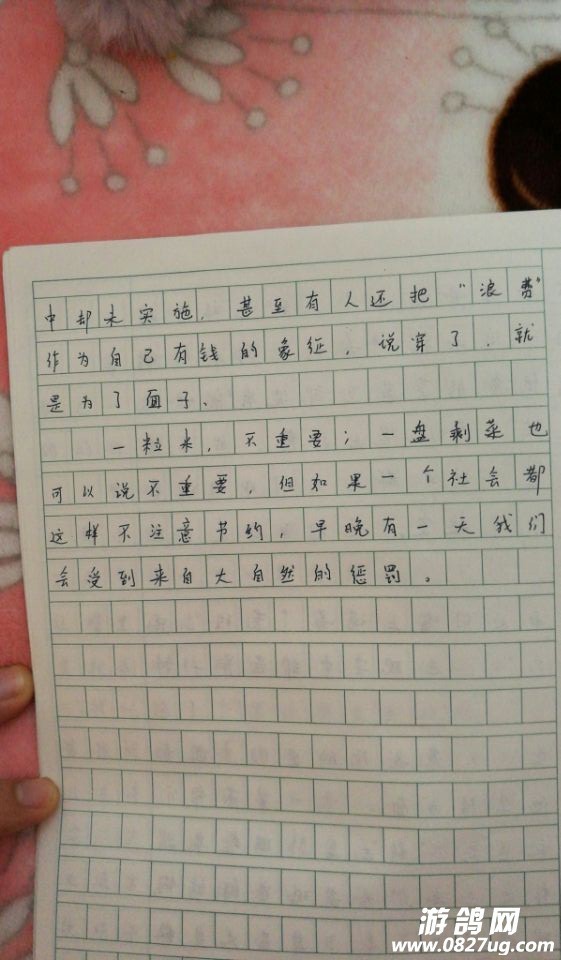 中却未实施，甚至有人还把“浪费”
作为自己有钱的象征，说穿了，就
是为了面子、
一粒米，不重要；一盘剩菜也
可以说不重要，但如果一个社会都
这样不注意节约，早晚有一天我们
会受到来自大自然的惩罚。
游鸽网
www.0827ug.com